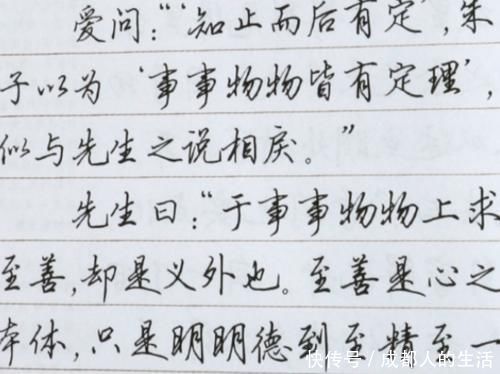 爱问：“‘知止而后有定’，朱
子以为‘事事物物皆有定理’，
似与先生之说相戾。”
先生曰：“于事事物物上求
至善，却是义外也。至善是心之
本体，只是明明德到至精至一
快传号／成都人的生活